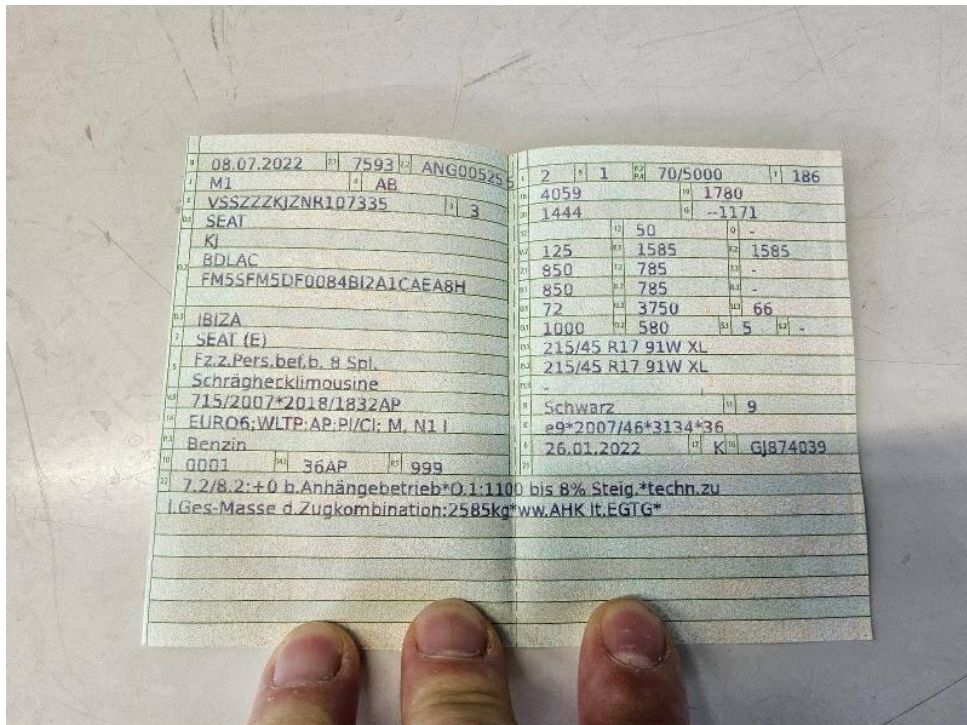 08.07.2022 7593 ANG00525 5
M1 AB
VSSZZZKJZNR107335 3
SEAT
KJ
BDLAC
FM5SFM5DF0084BI2A1CAEA8H
IBIZA
SEAT (E)
Fz.z.Pers.bef.b. 8 Spl.
Schräghecklimousine
715/2007*2018/1832AP
EURO6;WLTP;AP;PI/CI; M, N1 I
Benzin
0001 36AP 999
2 1 70/5000 186
4059 1780
1444 --1171
50 -
125 1585 1585
850 785 -
850 785 -
72 3750 66
1000 580 5 -
215/45 R17 91W XL
215/45 R17 91W XL
-
Schwarz 9
e9*2007/46*3134*36
26.01.2022 K GJ874039
7.2/8.2:+0 b.Anhängebetrieb*O.1:1100 bis 8% Steig.*techn.zu
l.Ges-Masse d.Zugkombination:2585kg*ww.AHK lt.EGTG*